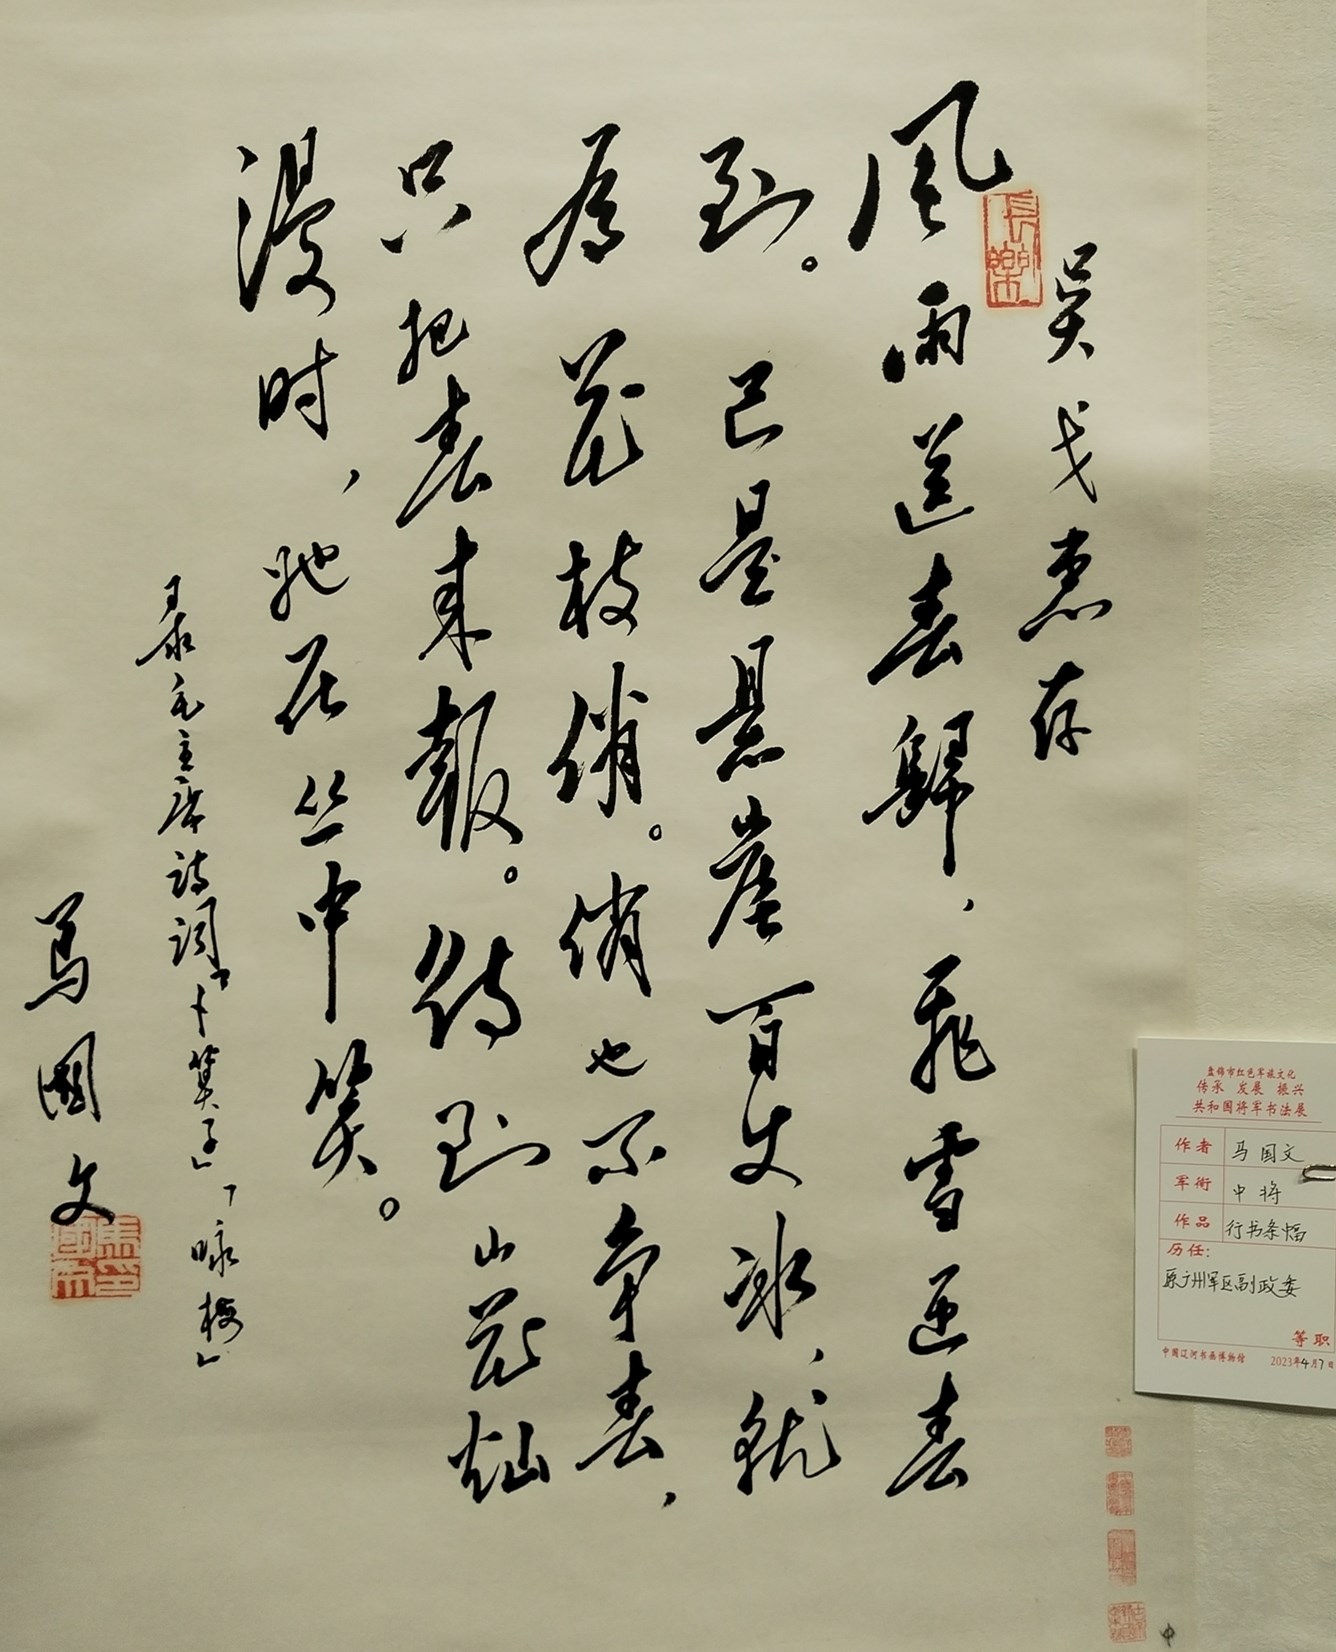 吴戈惠存
長樂
風雨送春歸,飛雪迎春
到。已是悬崖百丈冰,犹
有花枝俏。俏也不争春,
只把春来報。待到山花灿
漫时,她在丛中笑。
录毛主席诗词「卜算子」「咏梅」
馬國文
盘锦市红色军旅文化
传承 发展 振兴
共和国将军书法展
作者 马国文
军衔 中将
作品 行书条幅
历任:
原广州军区副政委
等职
中国辽河书画博物馆 2023年4月7日
中